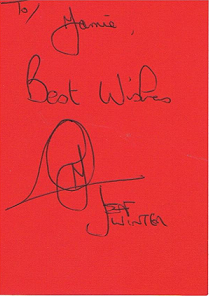 To/
Jamie,
Best Wishes
JEFF
WINTER